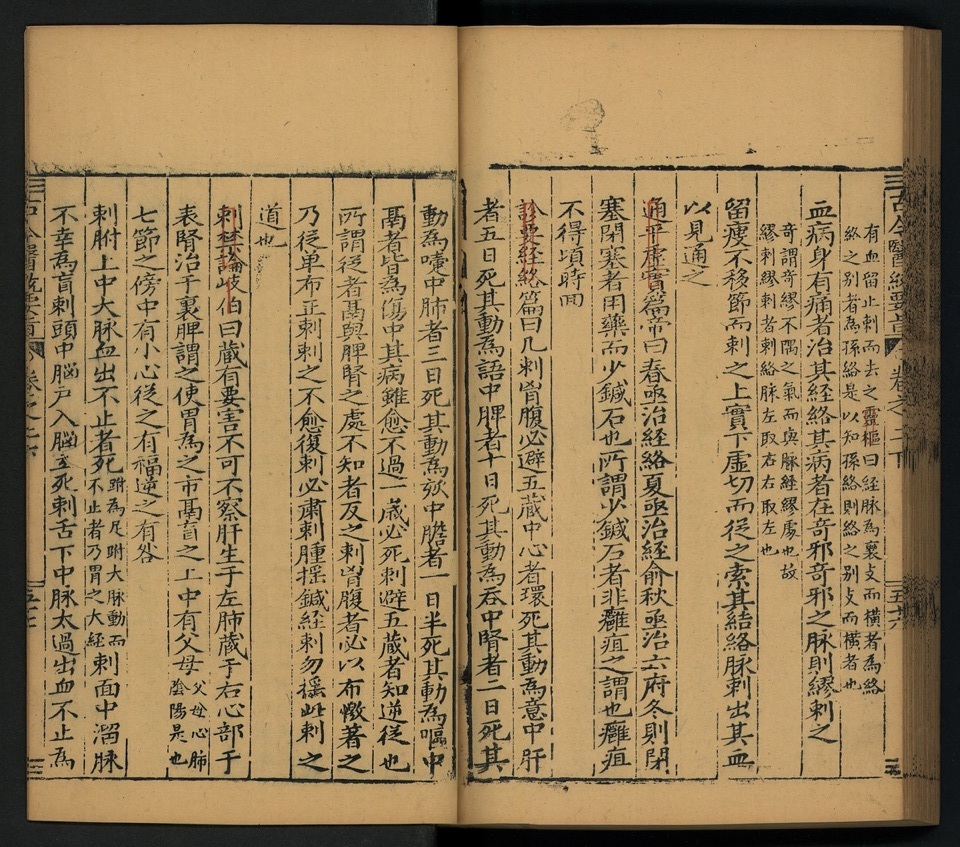 古今醫統要旨 卷之二下 五十六
有血留止刺而去之靈樞曰經脉為裏支而橫者為絡
絡之別者為孫絡是以知孫絡則絡之別支而橫者也
血病身有痛者治其經絡其病者在奇邪奇邪之脉則繆刺之
奇謂奇繆不隅之氣而與脉經繆處也故
繆刺繆刺者刺絡脉左取右右取左也
留瘦不移節而刺之上實下虛切而從之索其結絡脉刺出其血
以見通之
通平虛實篇帝曰春亟治經絡夏亟治經俞秋亟治六府冬則閉
塞閉塞者用藥而少鍼石也所謂少鍼石者非癰疽之謂也癰疽
不得頃時回
診要經絡篇曰凡刺胷腹必避五藏中心者環死其動為意中肝
者五日死其動為語中脾者十日死其動為吞中腎者二日死其
動為嚏中肺者三日死其動為欬中膽者一日半死其動為嘔中
鬲者皆為傷中其病雖愈不過一歲必死刺避五藏者知逆從也
所謂從者鬲與脾腎之處不知者反之刺胷腹者必以布憿著之
乃從单布正刺刺之不愈復刺必肅刺腫揺鍼経刺勿揺此刺之
道也
刺禁論岐伯曰藏有要害不可不察肝生于左肺藏于右心部于
表腎治于裏脾謂之使胃為之市鬲肓之上中有父母
父母心肺
陰陽是也
七節之傍中有小心從之有福逆之有咎
刺跗上中大脉血出不止者死
跗為足跗大脉動而
不止者乃胃之大経
刺面中溜脉
不幸為盲刺頭中腦户入腦立死刺舌下中脉太過出血不止為